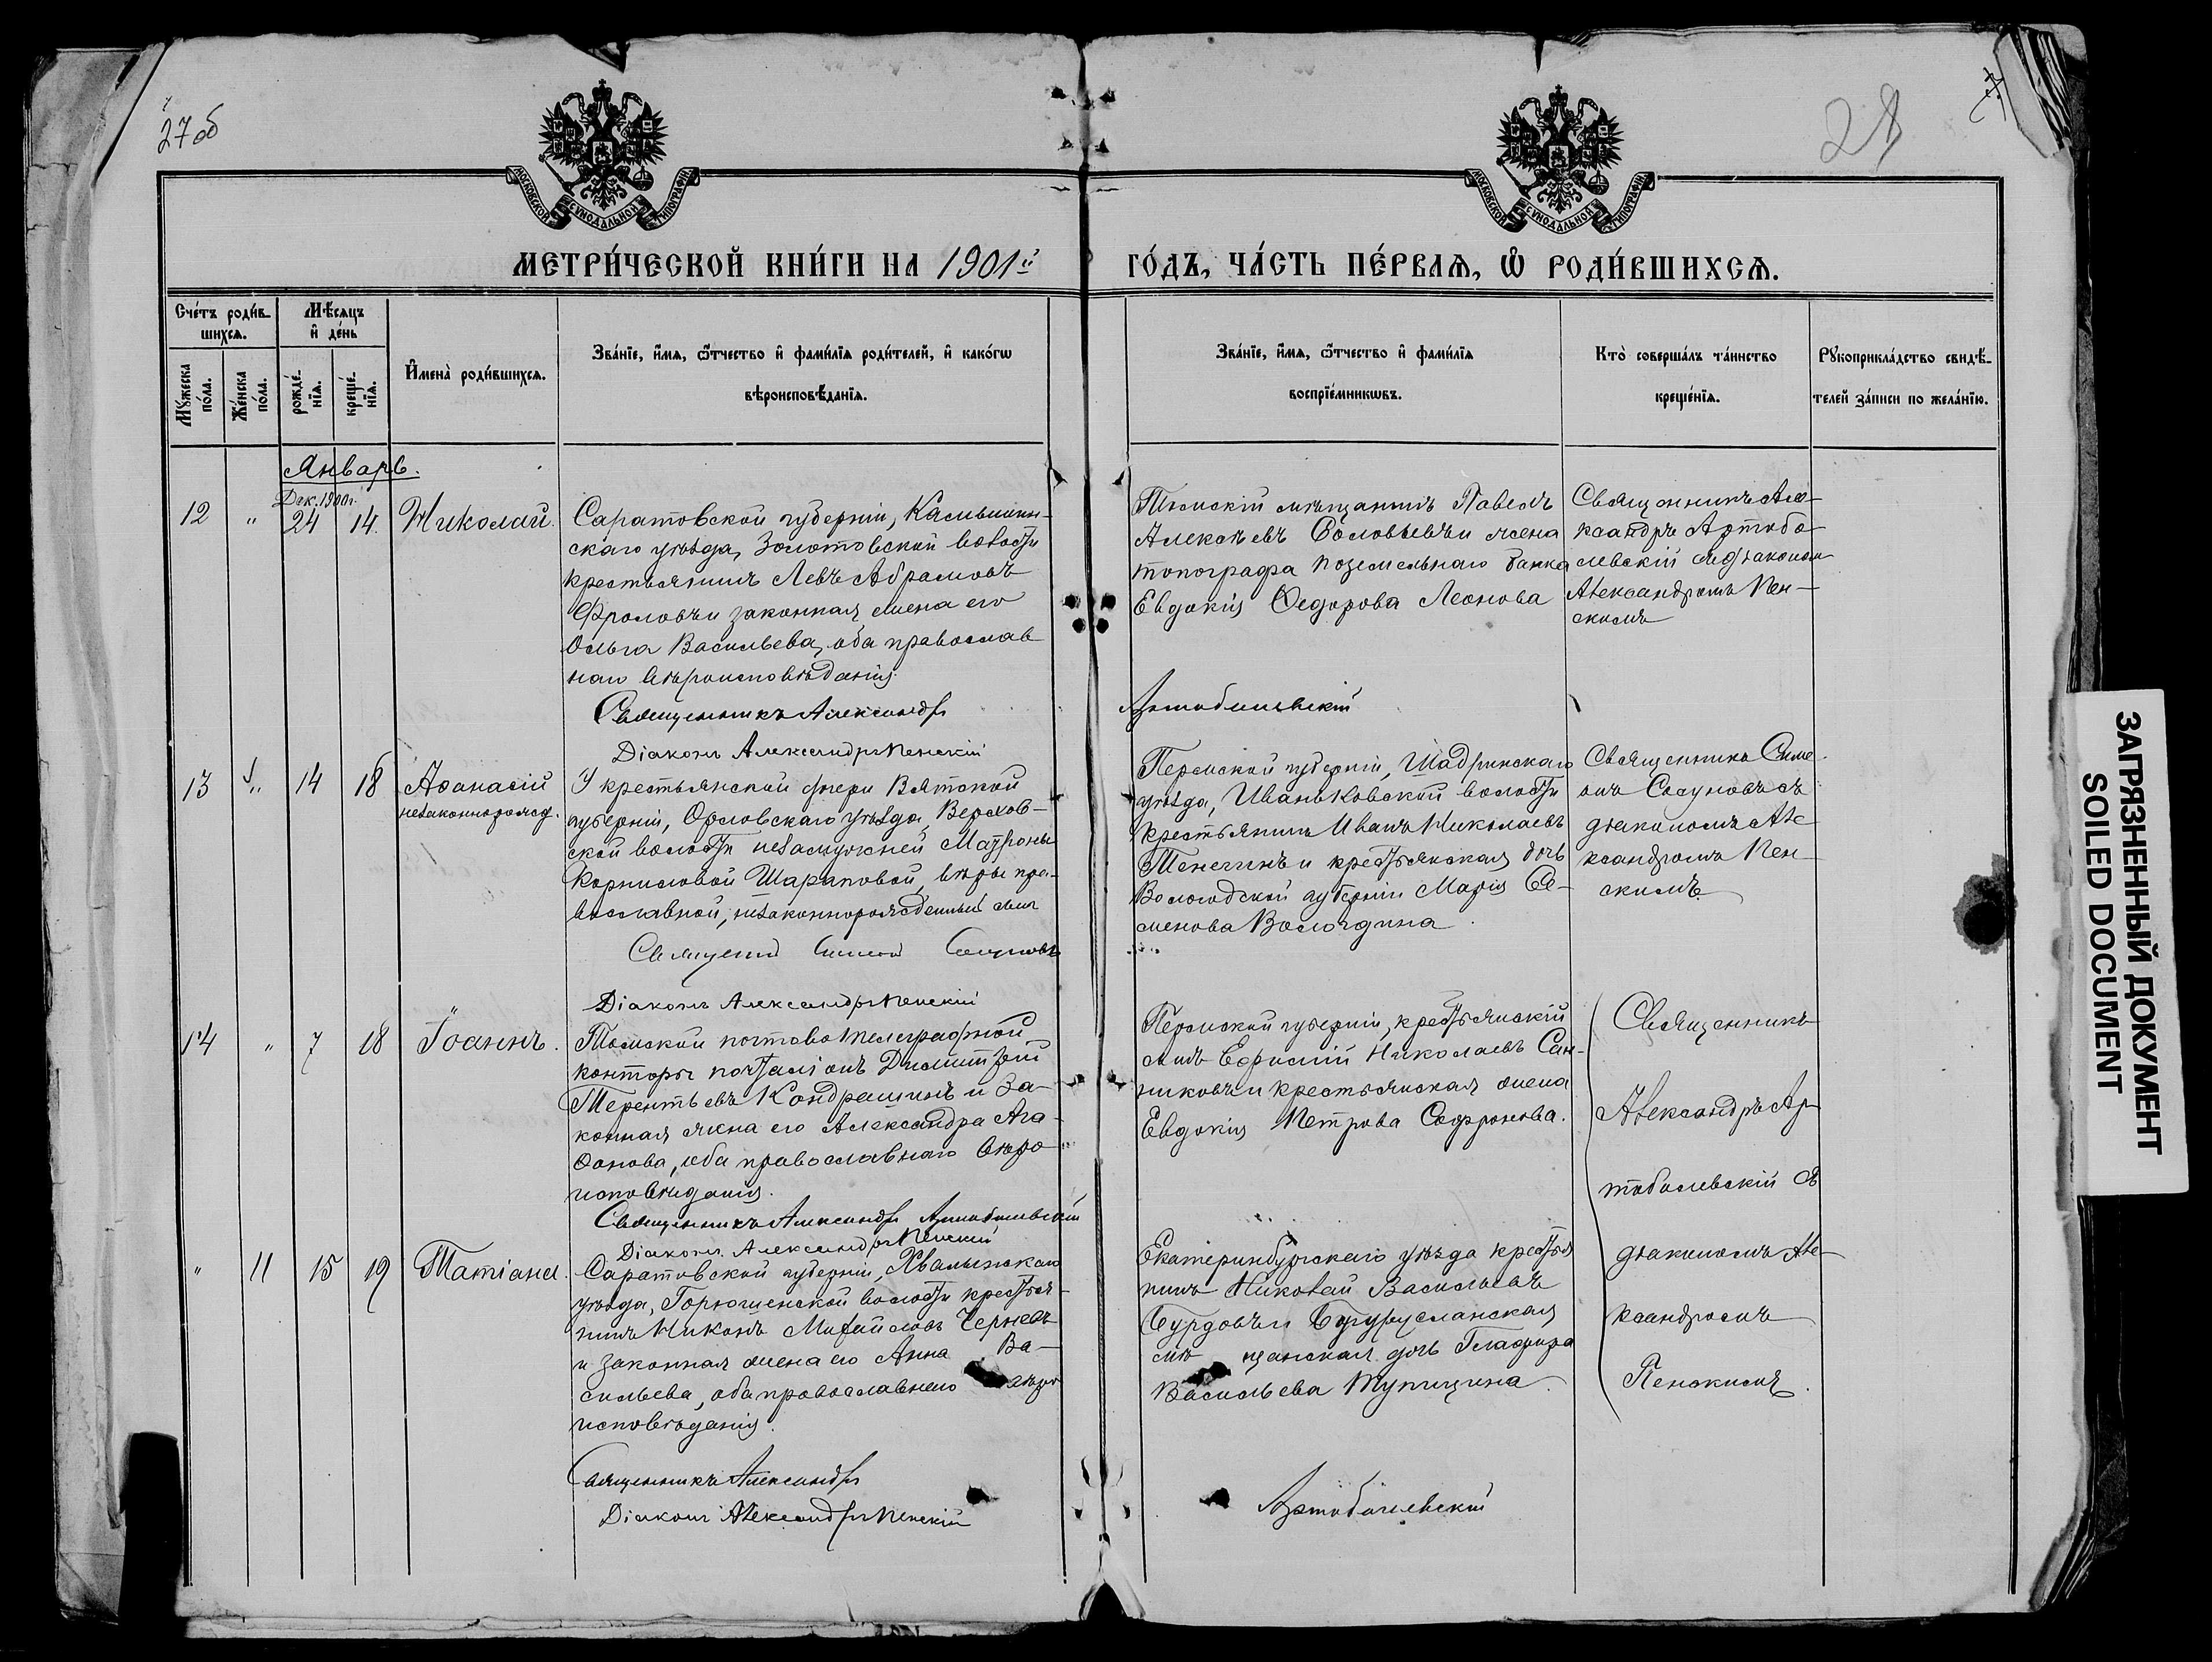 27 об
28
МОСКОВСКОЙ СѴНОДАЛЬНОЙ ТИПОГРАФІИ
МОСКОВСКОЙ СѴНОДАЛЬНОЙ ТИПОГРАФІИ
МЕТРИ́ЧЕСКОЙ КНИ́ГИ НА 1901й
ГО́ДЪ, ЧА́СТЬ ПЕ́РВАѦ, Ѡ РОДИ́ВШИХСѦ.
Сче́тъ роди́в-
шихсѧ.
Мѣ́сѧцъ
и де́нь
Мꙋ́жеска
по́ла.
Же́нска
по́ла.
рожде́-
нїѧ.
креще́-
нїѧ.
Имена̀ роди́вшихсѧ.
Зва́нїе, и́мѧ, ѻ҆́тчество и фами́лїѧ роди́телей, и како́гѡ
вѣроисповѣ́данїѧ.
Зва́нїе, и́мѧ, ѻ҆́тчество и фами́лїѧ
воспрїе́мникѡвъ.
Кто̀ соверша́лъ та́инство
креще́нїѧ.
Рꙋкоприкла́дство свидѣ́-
телей за́писи по жела́нїю.
Январь.
Дек. 1900 г.
12 " 24 14 Николай.
Саратовской губерніи, Камышин-
скаго уѣзда, Золотовской волости
крестьянинъ Левъ Абрамовъ
Фроловъ и законная жена его
Ольга Васильева, оба православ
наго вѣроисповѣданія.
Священникъ Александръ
Діаконъ Александръ Пенскій
Томскій мѣщанинъ Павелъ
Алексѣевъ Соловьевъ и жена
топографа поземельнаго банка
Евдокія Ѳедорова Леонова
Артоболевскій
Священникъ Але-
ксандръ Артобо-
левскій съ діакономъ
Александромъ Пен-
скимъ
13 " 14 18 Аѳанасій
незаконнорожд.
У крестьянской дочери Вятской
губерніи, Орловскаго уѣзда, Верхов-
ской волости незамужней Матроны
Корниловой Шараповой, вѣры пра-
вославной, незаконнорожденный сынъ
Священникъ Симеонъ Сосуновъ
Діаконъ Александръ Пенскій
Пермской губерніи, Шадринскаго
уѣзда, Иваньковской волости
крестьянинъ Иванъ Николаевъ
Тенегинъ и крестьянская дочь
Вологодской губерніи Марія Се-
менова Вологдина
Священникъ Симе-
онъ Сосуновъ съ
діакономъ Але-
ксандромъ Пен-
скимъ.
14 " 7 18 Іоаннъ.
Томской почтово телеграфной
конторы почталіонъ Димитрій
Терентьевъ Кондрашинъ и за-
конная жена его Александра Ага-
ѳонова, оба православнаго вѣро-
исповѣданія.
Священникъ Александръ Артоболевскій
Діаконъ Александръ Пенскій
Пермской губерніи, крестьянскій
сынъ Ефимій Николаевъ Сан-
никовъ и крестьянская жена
Евдокія Петрова Софронова.
Священникъ
Александръ Ар-
тоболевскій съ
діакономъ Але-
ксандромъ
Пенскимъ.
" 11 15 19 Татіана.
Саратовской губерніи, Хвалынскаго
уѣзда, Горюшенской волости крестья-
нинъ Никонъ Михайловъ Черневъ
и законная жена его Анна Ва-
сильева, оба православнаго вѣро-
исповѣданія.
Священникъ Александръ
Діаконъ Александръ Пенскій
Екатеринбургскаго уѣзда крестья
нинъ Николай Васильевъ
Бурдовъ и Бугурусланская
мѣщанская дочь Глафира
Васильева Тупицина.
Артоболевскій
ЗАГРЯЗНЕННЫЙ ДОКУМЕНТ
SOILED DOCUMENT